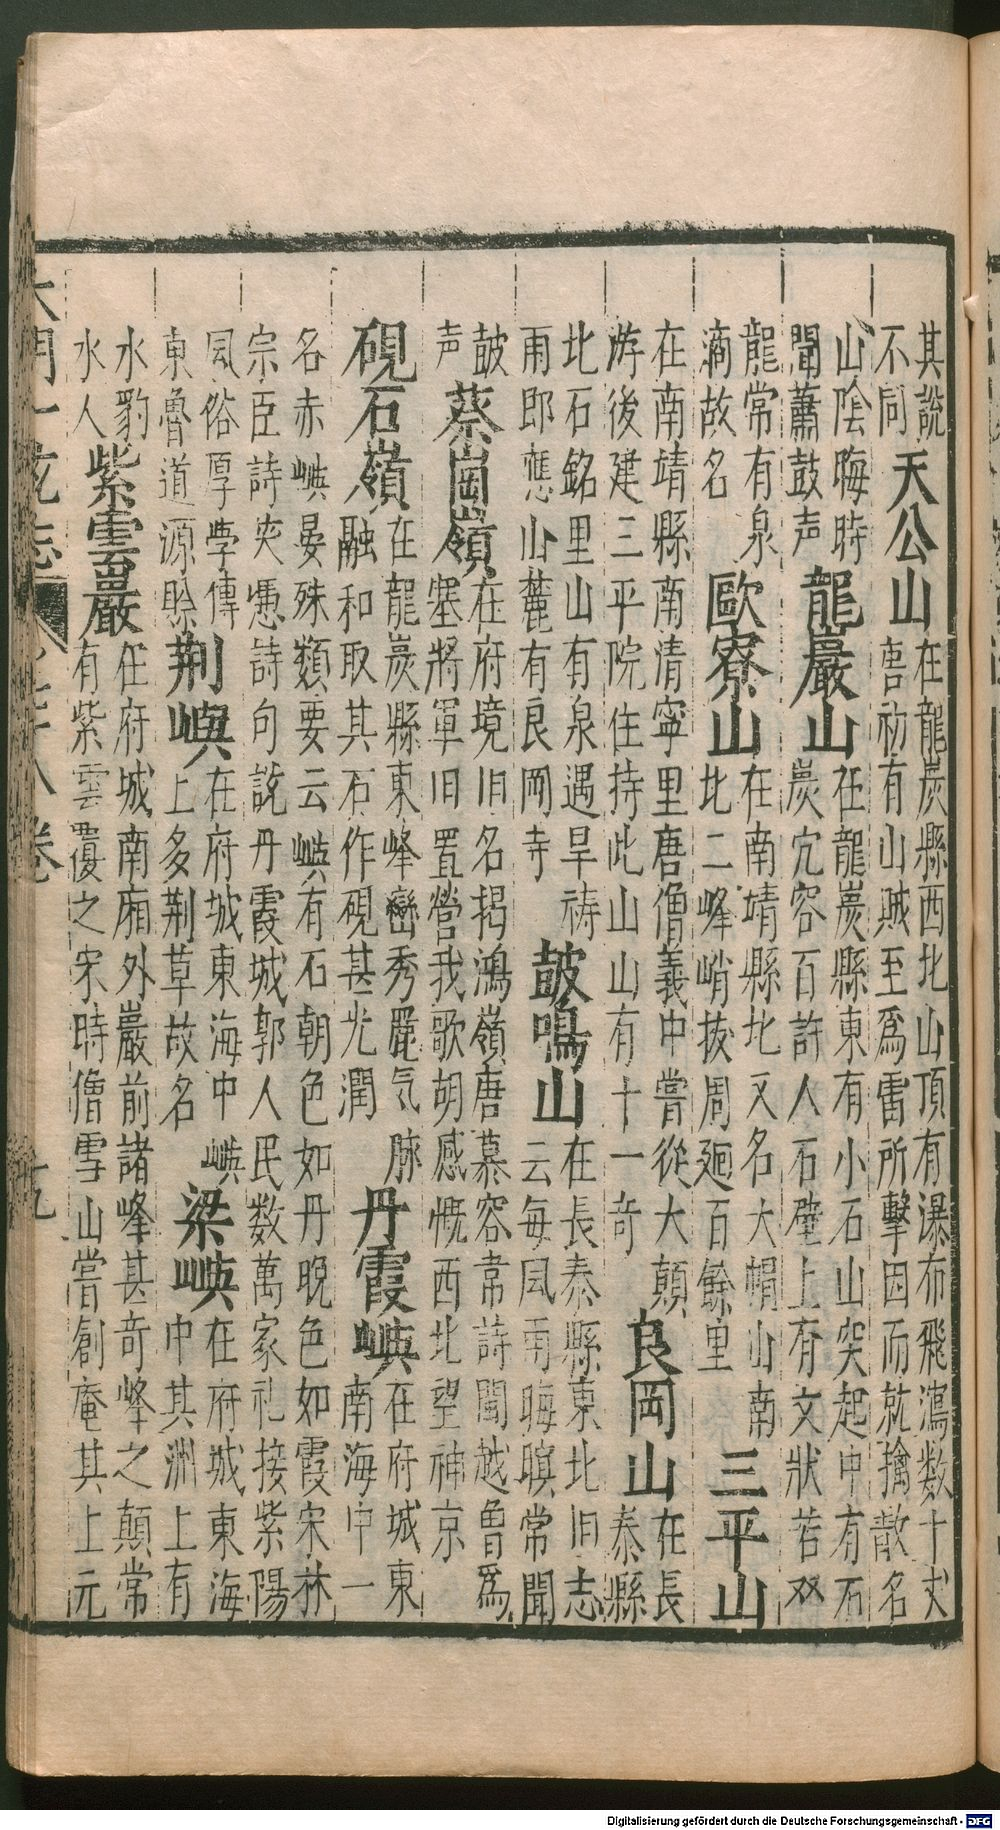 其說
不同
天公山
在龍炭縣西北山頂有瀑布飛瀉数十丈
唐初有山賊至爲雷所擊因而就擒散名
山陰晦時
聞蕭鼓声
龍巖山
在龍炭縣東有小石山突起中有石
炭穴容百許人石壁上有文狀若双
龍常有泉
滴故名
歐寮山
在南靖縣北又名大帽山南
北二峰峭拔周廻百餘里
三平山
在南靖縣南清寧里唐僧義中嘗從大顛
游後建三平院住持此山山有十一奇
良岡山
在長
泰縣
北石銘里山有泉遇旱祷
雨即應山麓有良岡寺
皷鳴山
在長泰縣東北旧志
云每風雨晦暝常聞
皷
声
蔡崗嶺
在府境旧名揭鴻嶺唐慕容韋詩閩越曾爲
塞將軍旧置營我歌胡感慨西北望神京
硯石嶺
在龍炭縣東峰巒秀麗气脉
融和取其石作硯甚光潤
丹霞嶼
在府城東
南海中一
名赤嶼晏殊類要云嶼有石朝色如丹晚色如霞宋林
宗臣詩詩句說丹霞城郭人民数萬家礼接紫陽
風俗厚學傳
東魯道源賒
荆嶼
在府城東海中嶼
上多荆草故名
梁嶼
在府城東海
中其洲上有
水豹
水人
紫雲巖
在府城南廂外巖前諸峰甚奇峰之顛常
有紫雲覆之宋時僧雪山嘗創庵其上元
大明一統志 七十八卷 十九
Digitalisierung gefördert durch die Deutsche Forschungsgemeinschaft - DFG